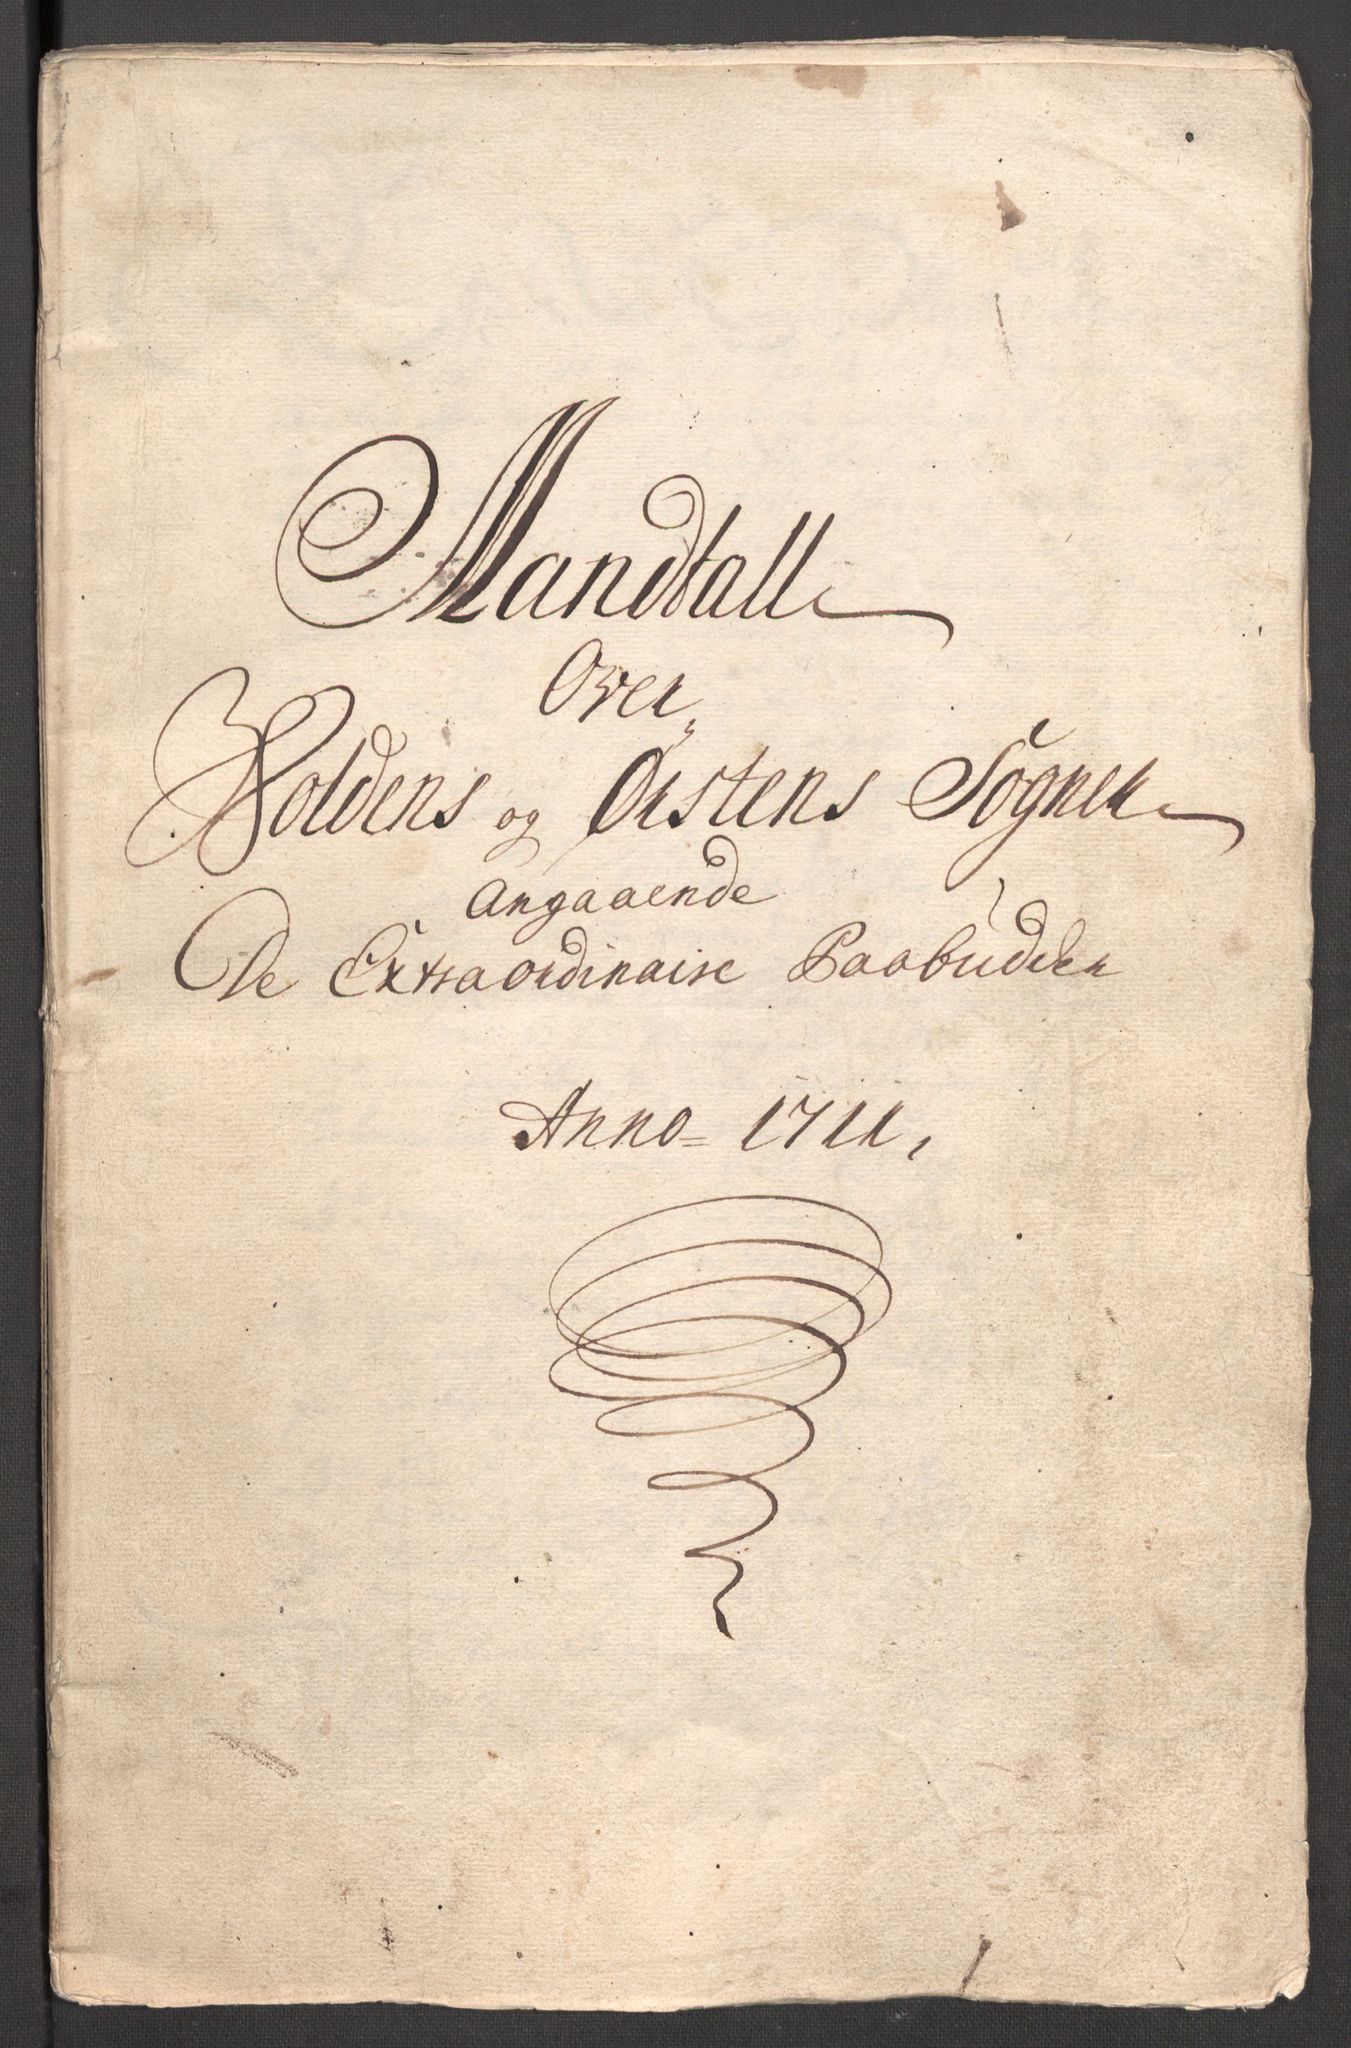 Mandtall
Over
Woldens og Ørstens Sogner
Angaaende
De Extraordinaire Paabudder
Anno = 1711,